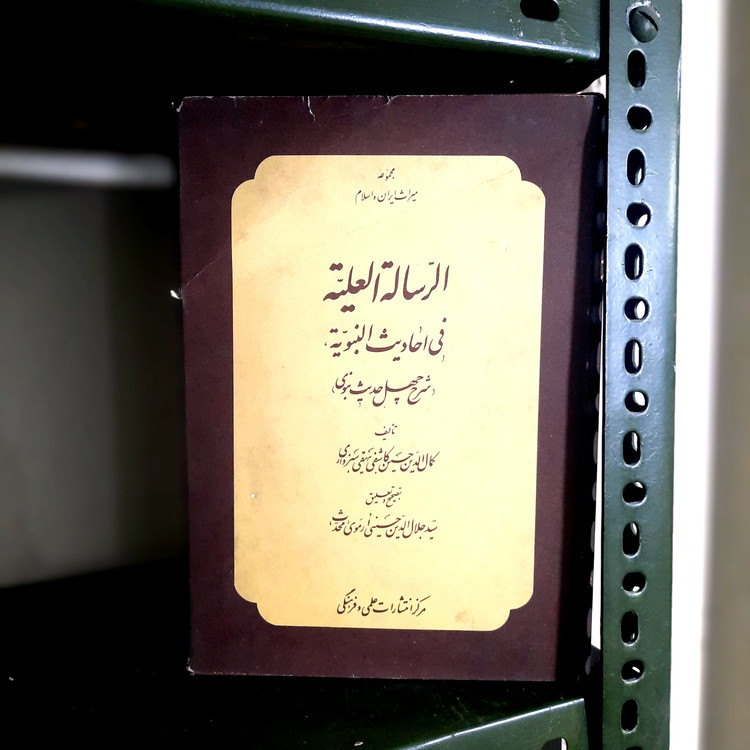 مجموعه
میراث ایران و اسلام
الرّسالة العلیّة
فی احادیث النبویّة
(شرح چهل حدیث نبوی)
تألیف
کمال‌الدین حسین کاشفی بیهقی سبزواری
بتصحیح و تعلیق
سید جلال‌الدین حسینی ارموی «محدث»
مرکز انتشارات علمی و فرهنگی